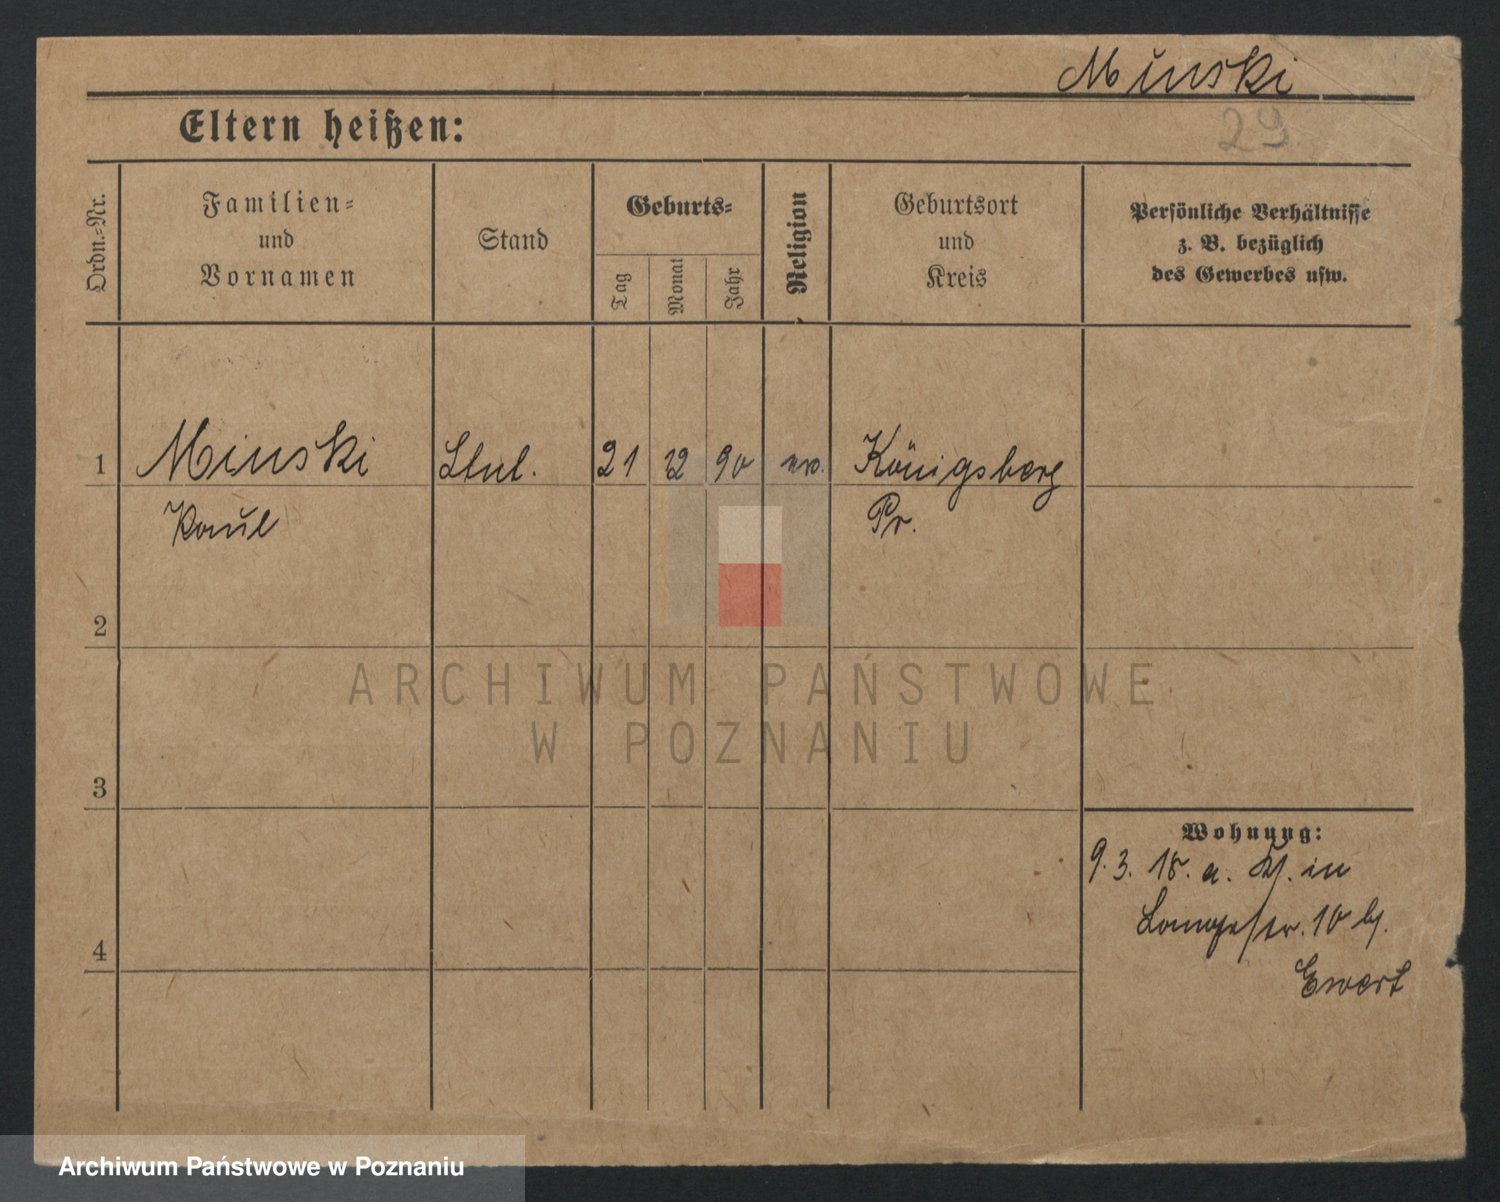 Minski
29
Eltern heißen:
Ordn.-Nr.
Familien-
und
Vornamen
Stand
Geburts-
Tag
Monat
Jahr
Religion
Geburtsort
und
Kreis
Persönliche Verhältnisse
z. B. bezüglich
des Gewerbes usw.
1
Minski
21
12
90
ev.
Königsberg
Paul
Pr.
2
ARCHIWUM PAŃSTWOWE
W POZNANIU
3
Wohnung:
9. 3. 18. a. in
Langestr. 10 b/.
Ewert
4
Archiwum Państwowe w Poznaniu